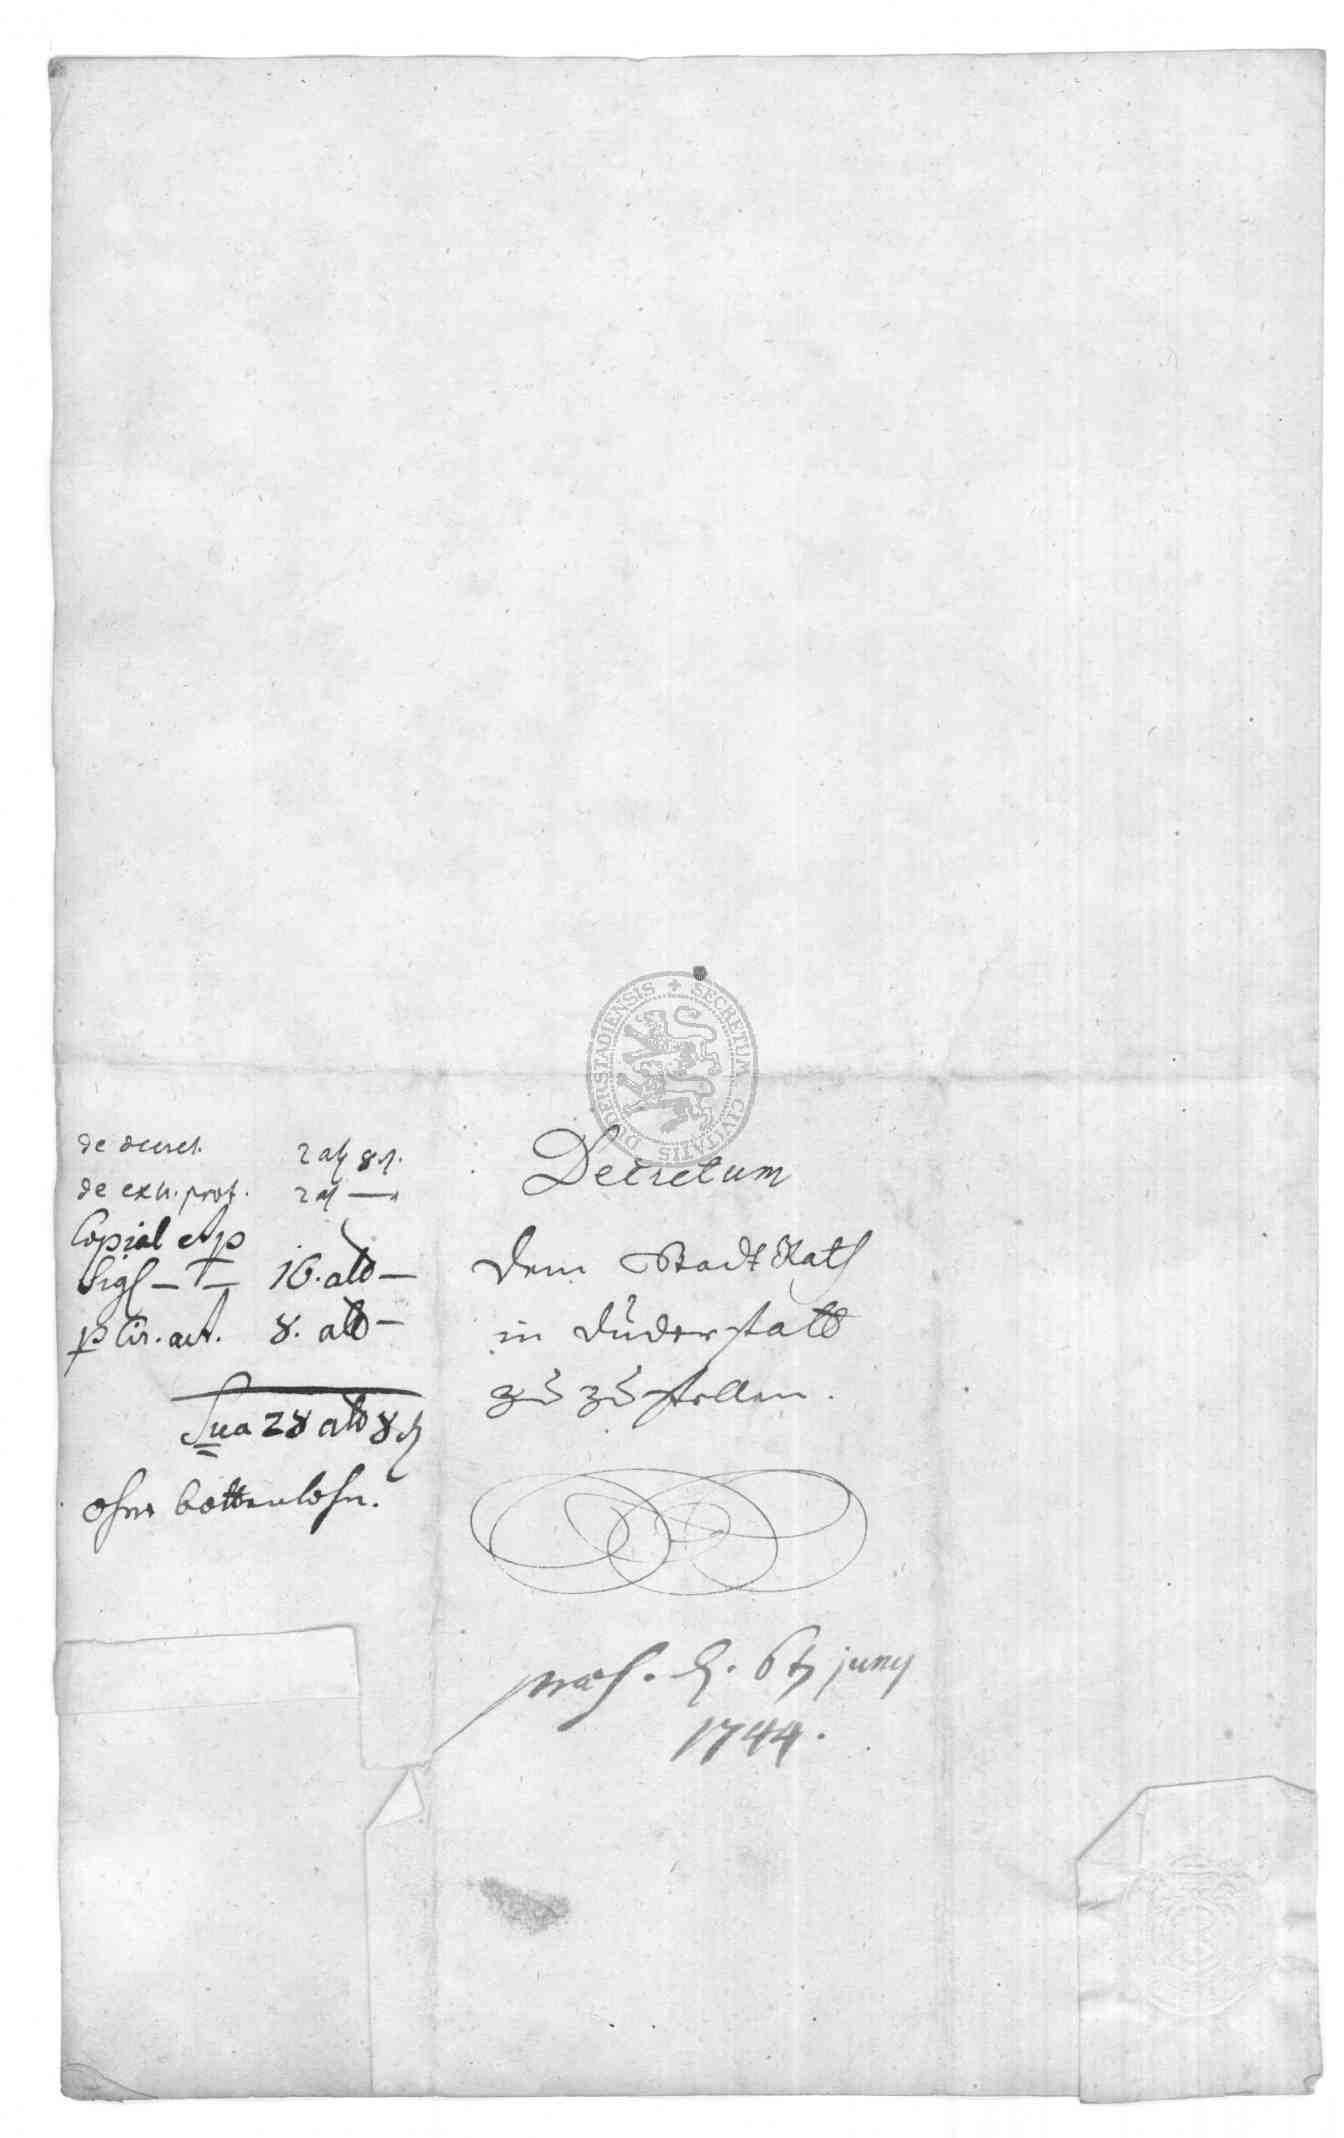 SECRETUM CIVITATIS DUDERSTADIENSIS
de decret. 2 alb 8 d.
de exh. prot. 2 alb —
Copial et p
Sigl — 16. alb —
p Cir. act. 8. alb —
Sua 28 alb 8 d
ohne bottenlohn.
Decretum
dem Stadt Rath
in duderstatt
zu zustellen.
praes. d. 6t juny
1744.